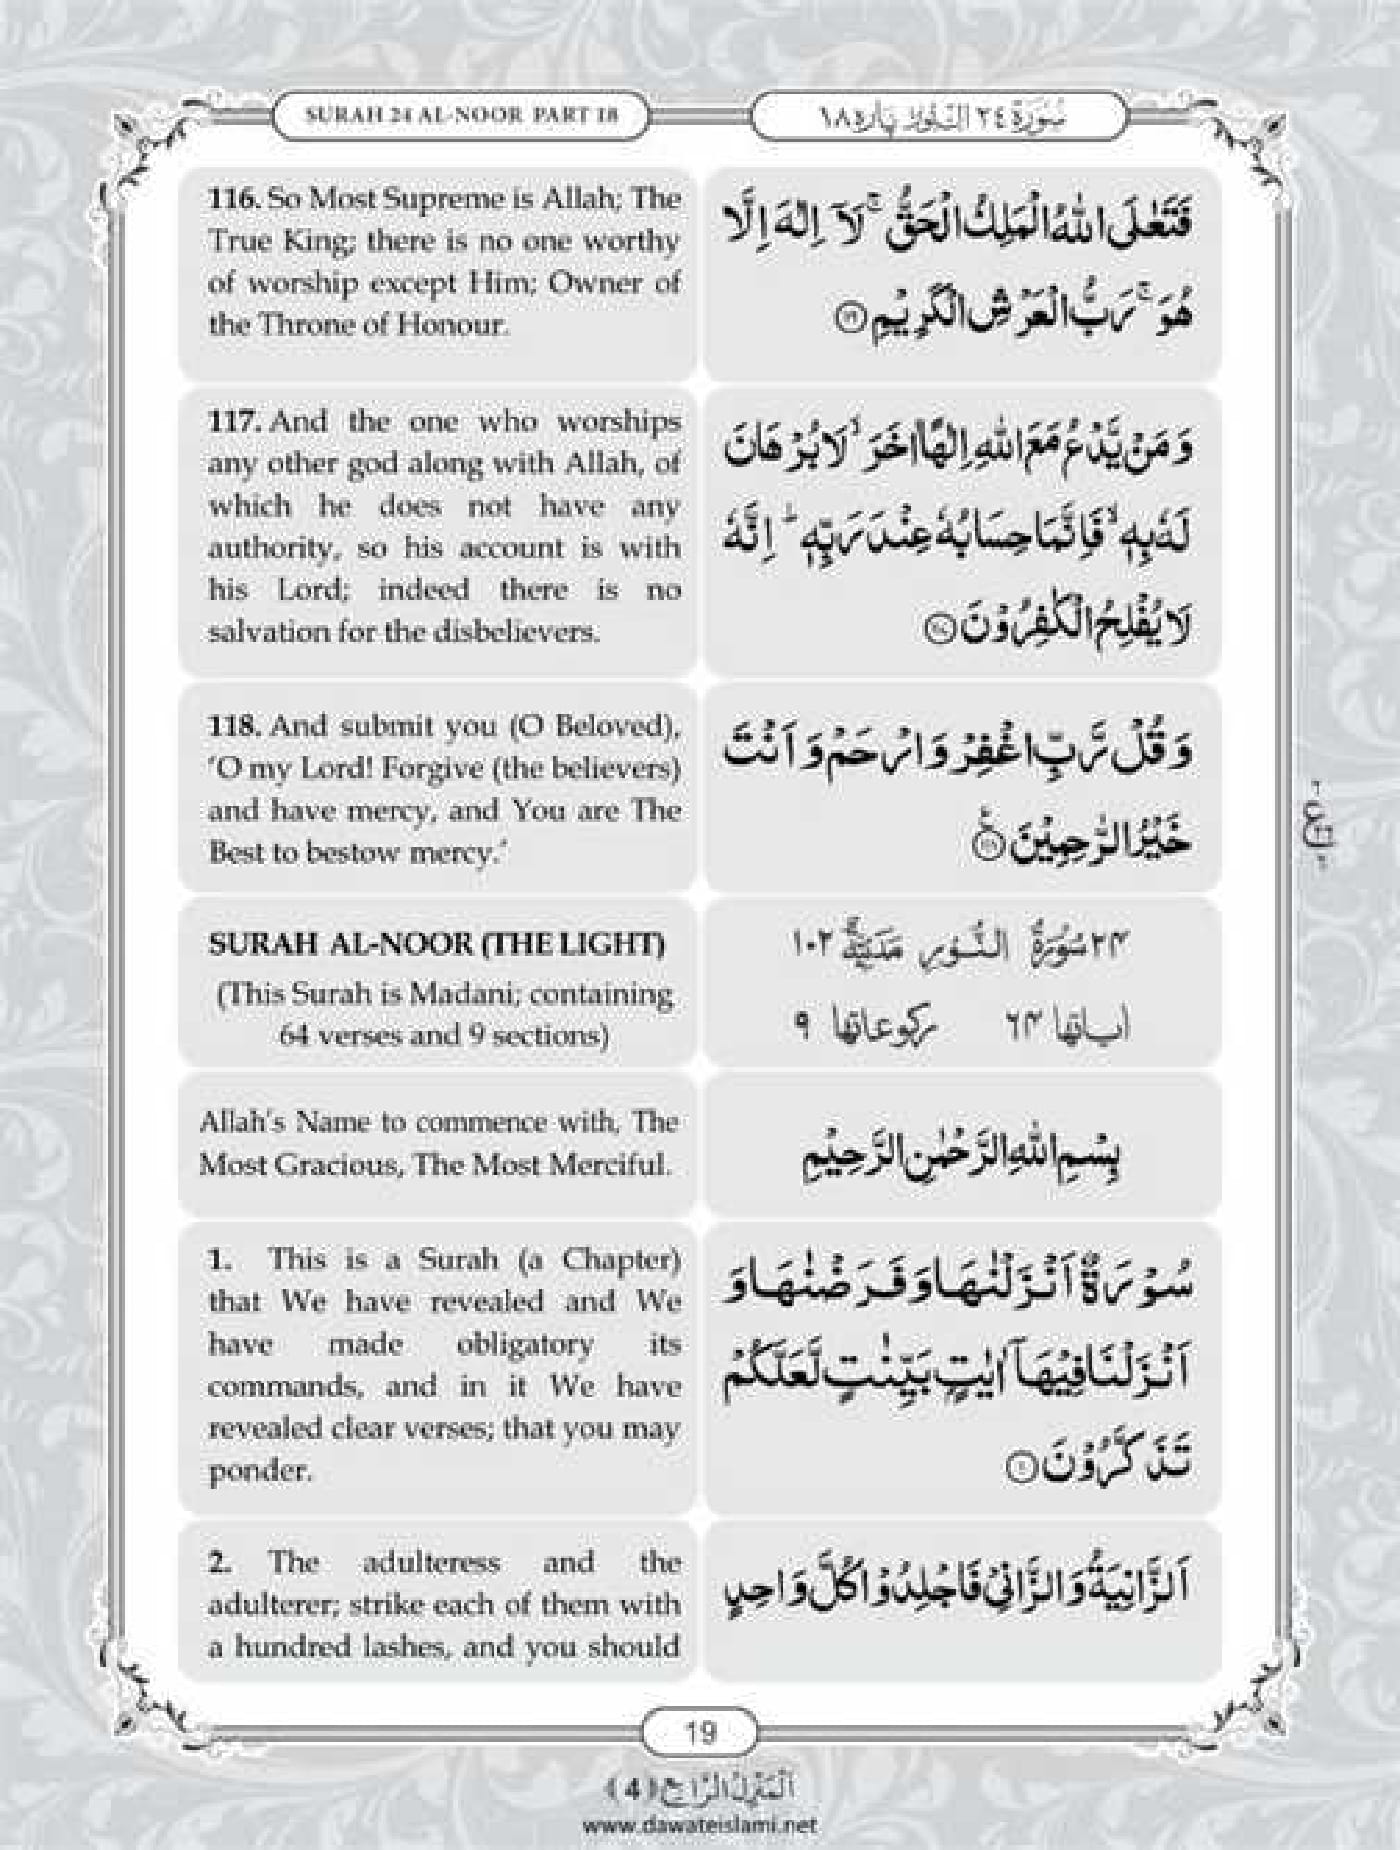 SURAH 24 AL-NOOR PART 18
سُوْرَة ٢٤ النُّوْر پارہ ١٨
116. So Most Supreme is Allah; The
True King; there is no one worthy
of worship except Him; Owner of
the Throne of Honour.
فَتَعٰلَى اللّٰهُ الْمَلِكُ الْحَقُّ ۚ لَاۤ اِلٰهَ اِلَّا
هُوَ ۚ رَبُّ الْعَرْشِ الْكَرِیْمِ
117. And the one who worships
any other god along with Allah, of
which he does not have any
authority, so his account is with
his Lord; indeed there is no
salvation for the disbelievers.
وَ مَنْ یَّدْعُ مَعَ اللّٰهِ اِلٰهًا اٰخَرَ ۙ لَا بُرْهَانَ
لَهٗ بِهٖ ۙ فَاِنَّمَا حِسَابُهٗ عِنْدَ رَبِّهٖ ؕ اِنَّهٗ
لَا یُفْلِحُ الْكٰفِرُوْنَ
118. And submit you (O Beloved),
‘O my Lord! Forgive (the believers)
and have mercy, and You are The
Best to bestow mercy.’
وَ قُلْ رَّبِّ اغْفِرْ وَ ارْحَمْ وَ اَنْتَ
خَیْرُ الرّٰحِمِیْنَ
SURAH AL-NOOR (THE LIGHT)
(This Surah is Madani; containing
64 verses and 9 sections)
٢٤ سُوْرَةُ النُّوْرِ مَدَنِيَّةٌ ١٠٢
اٰیاتها ٦٤ ركوعاتها ٩
Allah’s Name to commence with, The
Most Gracious, The Most Merciful.
بِسْمِ اللّٰهِ الرَّحْمٰنِ الرَّحِیْمِ
1. This is a Surah (a Chapter)
that We have revealed and We
have made obligatory its
commands, and in it We have
revealed clear verses; that you may
ponder.
سُوْرَةٌ اَنْزَلْنٰهَا وَ فَرَضْنٰهَا وَ
اَنْزَلْنَا فِیْهَاۤ اٰیٰتٍۭ بَیِّنٰتٍ لَّعَلَّكُمْ
تَذَكَّرُوْنَ ١
2. The adulteress and the
adulterer; strike each of them with
a hundred lashes, and you should
اَلزَّانِیَةُ وَ الزَّانِیْ فَاجْلِدُوْا كُلَّ وَاحِدٍ
19
اَلْمَنْزِلُ الرَّابِع (4)
www.dawateislami.net